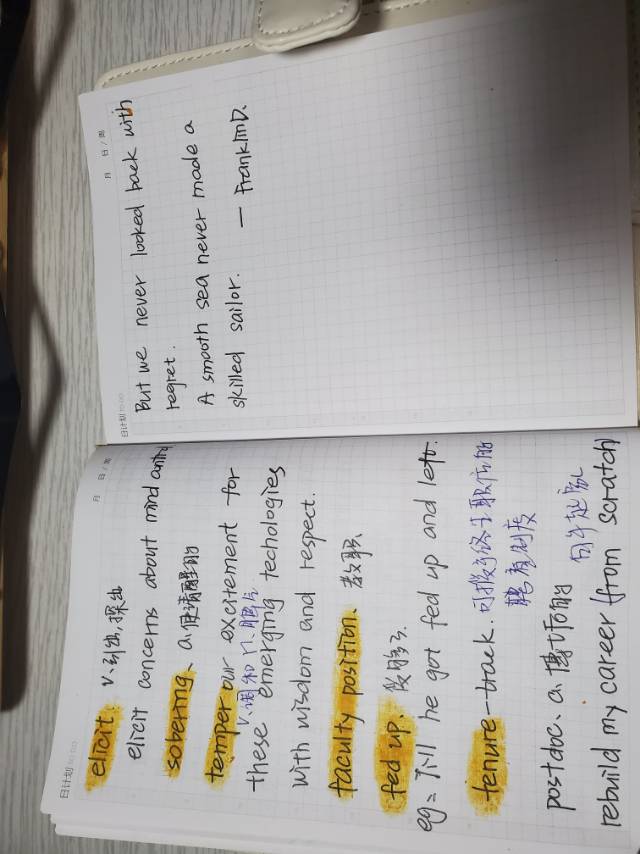 日计划 TO DO
月 日/周
elicit. v.引出,探出
elicit concerns about mind control
sobering、a.使清醒的
temper our excitement for
v.调和 n.脾气
these emerging techologies
with wisdom and respect.
faculty position、教职
fed up、
eg= he got fed up and left.
tenure-track.可授予终生职位的
聘任制度
postdoc、a.博士后的
rebuild my career (from scratch)
日计划 TO DO
月 日/周
But we never looked back with
regret.
A smooth sea never made a
skilled sailor. — Franklin D.